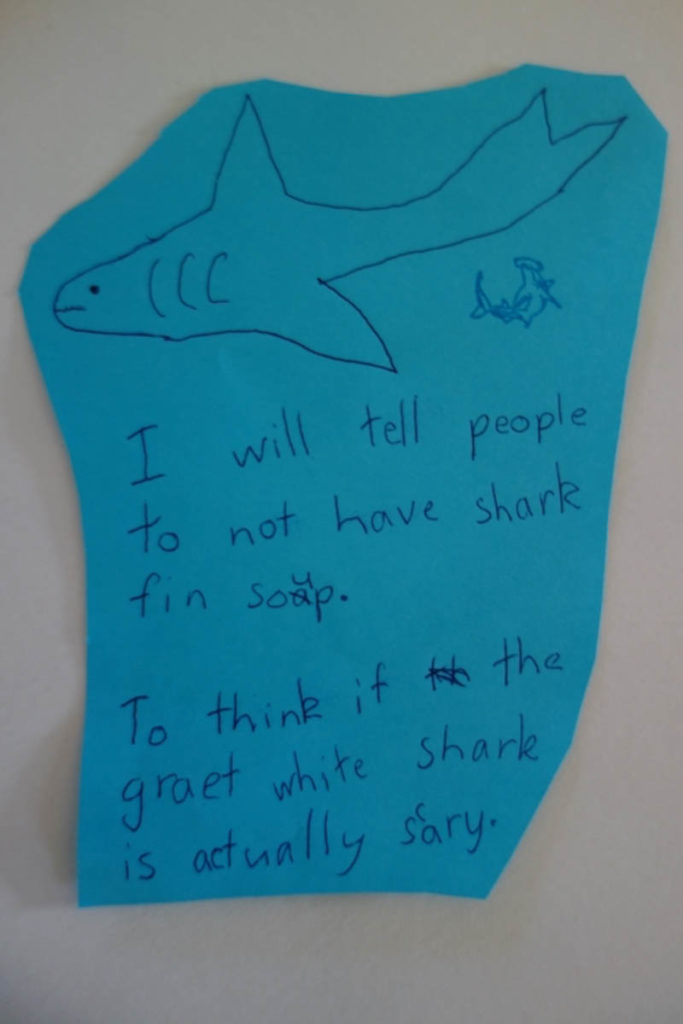 I will tell people
to not have shark
fin soup.
To think if the
graet white shark
is actually scary.